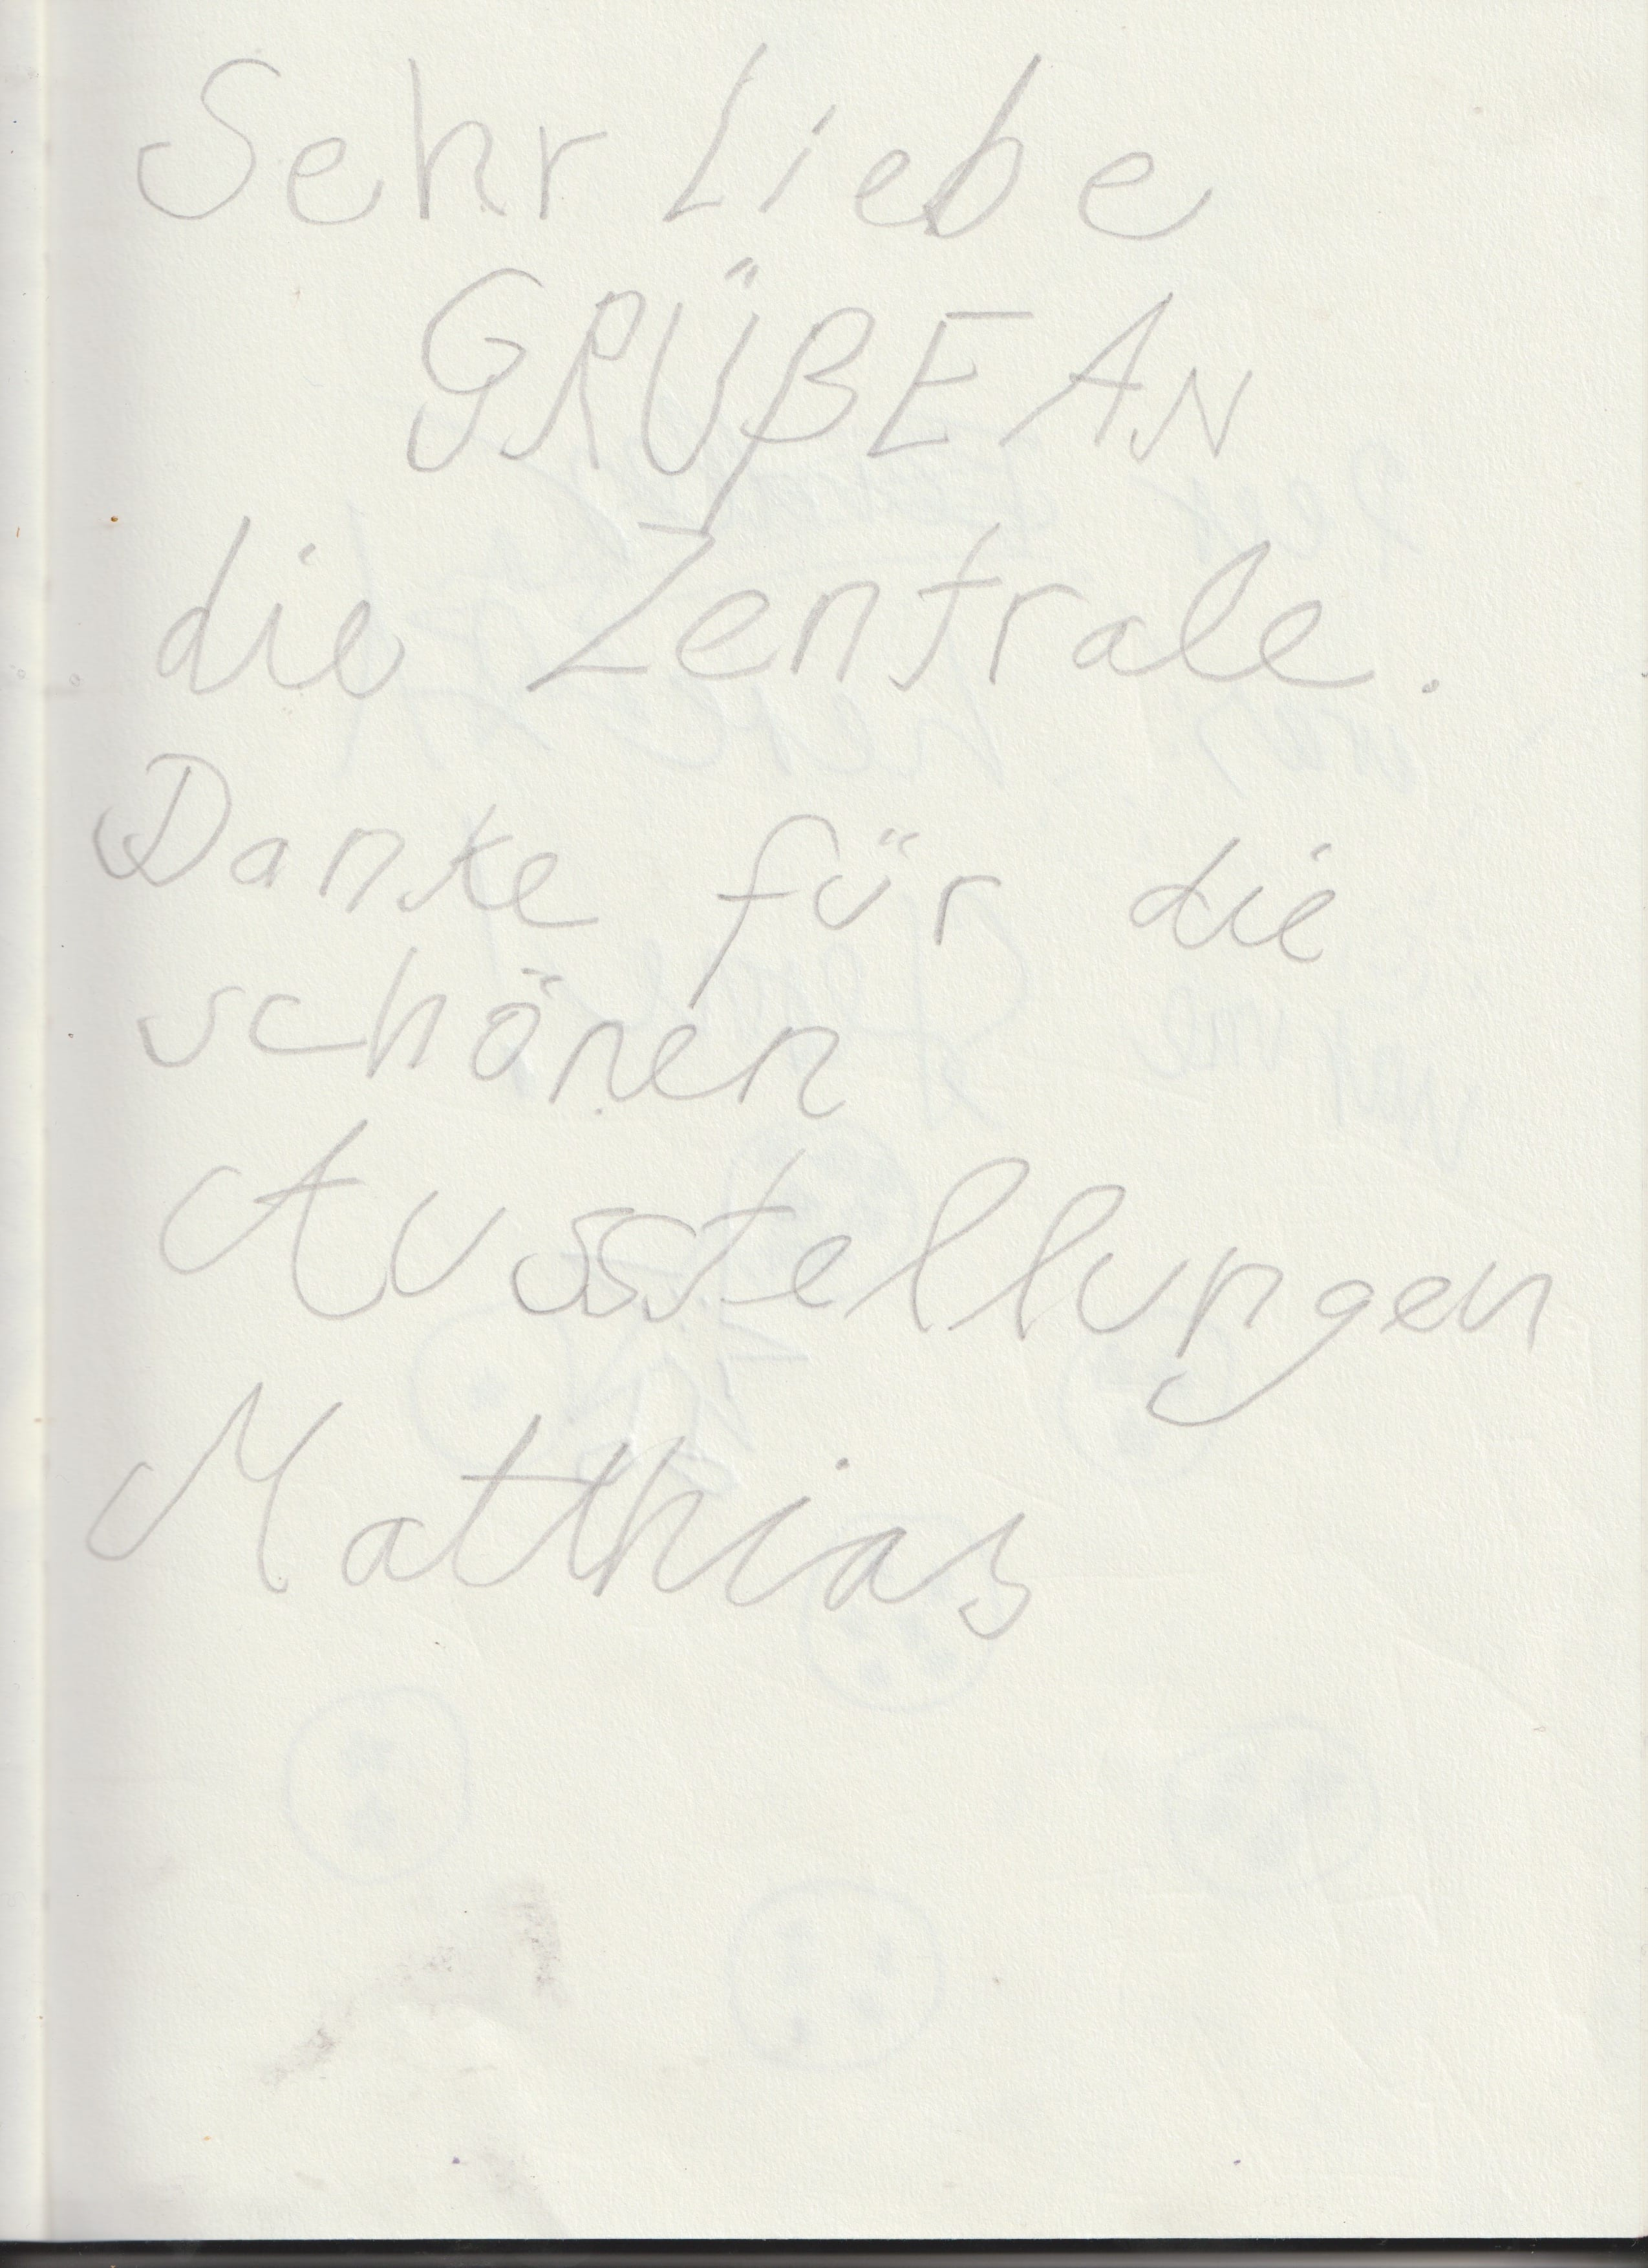 Sehr Liebe
GRÜßE AN
die Zentrale.
Danke für die
schönen
Ausstellungen
Matthias